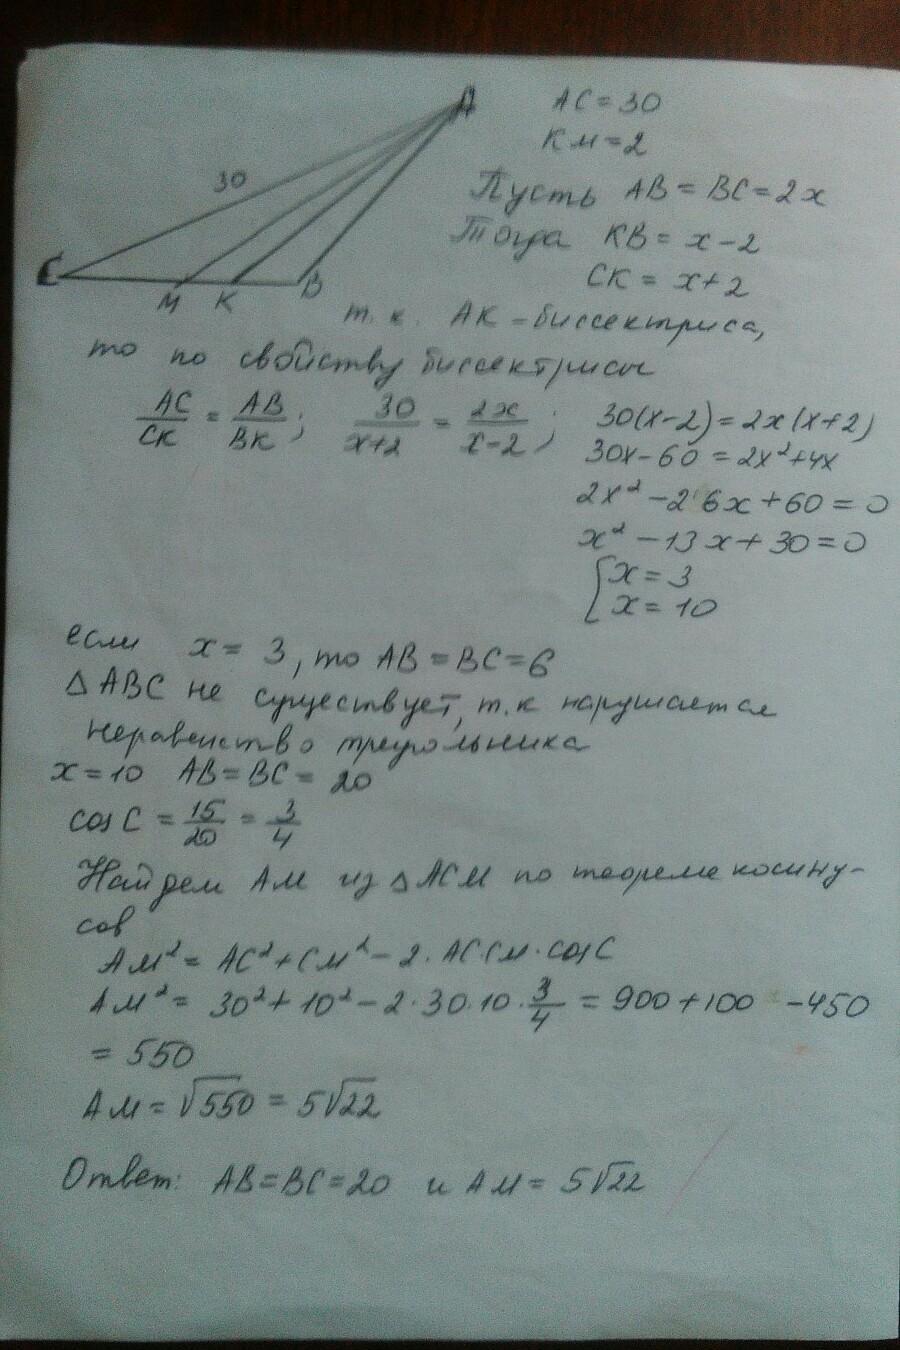 A
AC = 30
KM = 2
30
Пусть AB = BC = 2x
Тогда KB = x - 2
C
CK = x + 2
M K B
т.к. AK - биссектриса,
то по свойству биссектрисы
AC/CK = AB/BK ; 30/x+2 = 2x/x-2 ; 30(x-2) = 2x(x+2)
30x - 60 = 2x² + 4x
2x² - 26x + 60 = 0
x² - 13x + 30 = 0
[x = 3
x = 10
если x = 3, то AB = BC = 6
△ABC не существует, т.к нарушается
неравенство треугольника
x = 10 AB = BC = 20
cos C = 15/20 = 3/4
Найдем AM из △ACM по теореме косину-
сов
AM² = AC² + CM² - 2·AC·CM·cos C
AM² = 30² + 10² - 2·30·10·3/4 = 900 + 100 - 450
= 550
AM = √550 = 5√22
Ответ: AB = BC = 20 и AM = 5√22